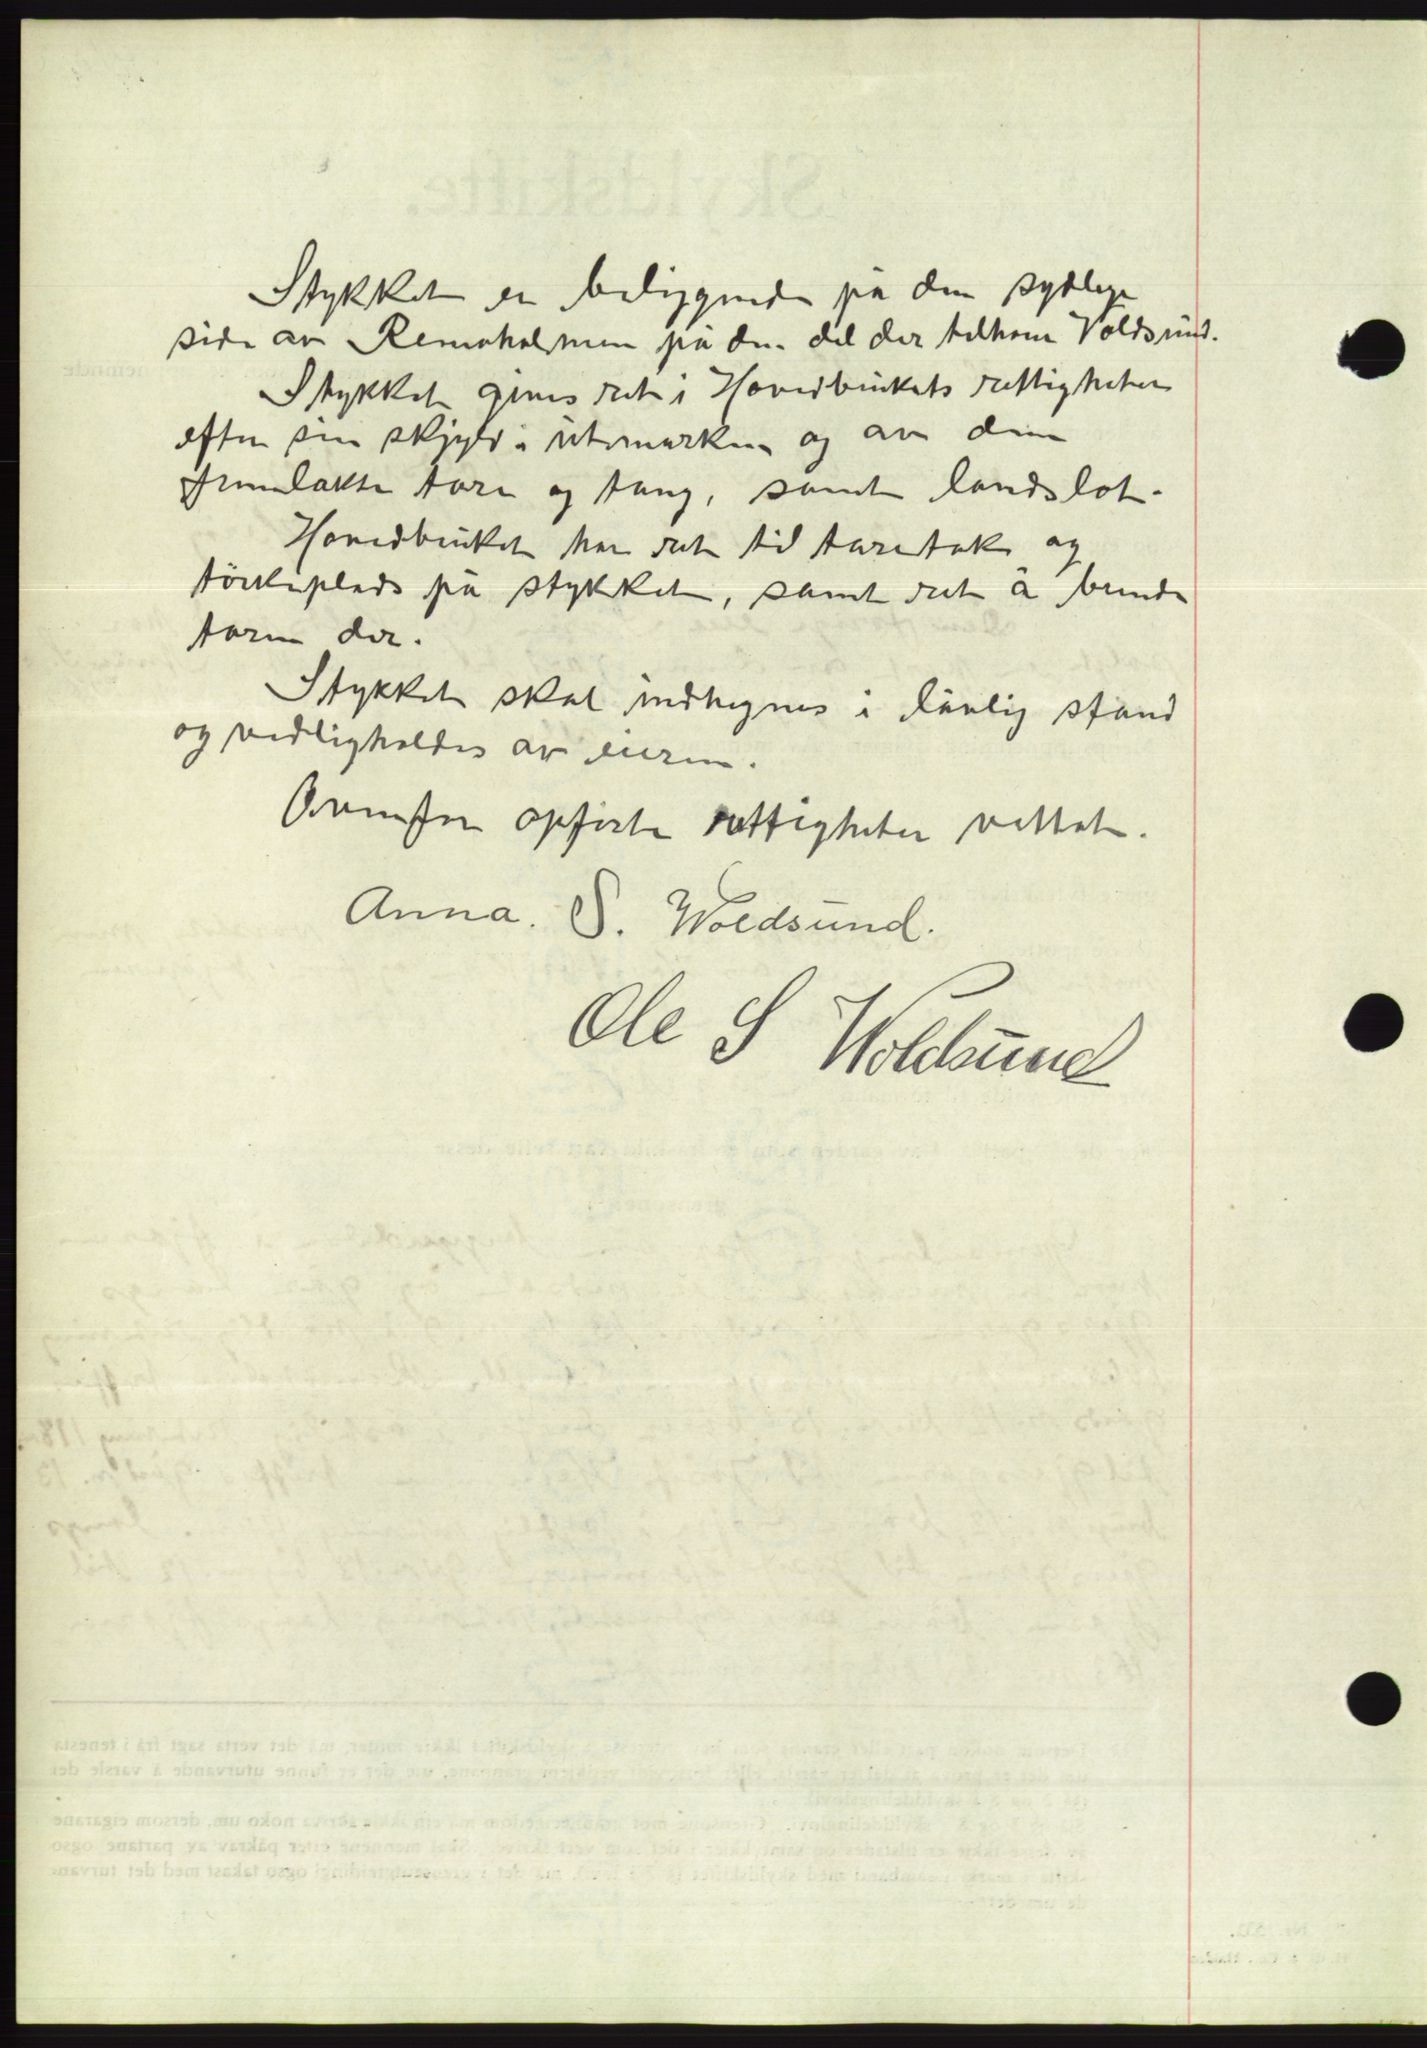 Stykket er beliggende på den sydlege
side av Remøholmen på den del der tilhører Voldsund.
Stykket gives ret i Hovedbrukets rettigheter
efter sin skyld i utemarken og av den
tare og tang, samt landslot.
Hovedbruket har ret til taretak og
törkeplads på stykket, samt ret å brende
taren der.
Stykket skal indhegnes i lovlig stand
og vedligholdes av eieren.
Ovenfor opförte rettigheter vettat.
Anna. S. Woldsund.
Ole S Woldsund